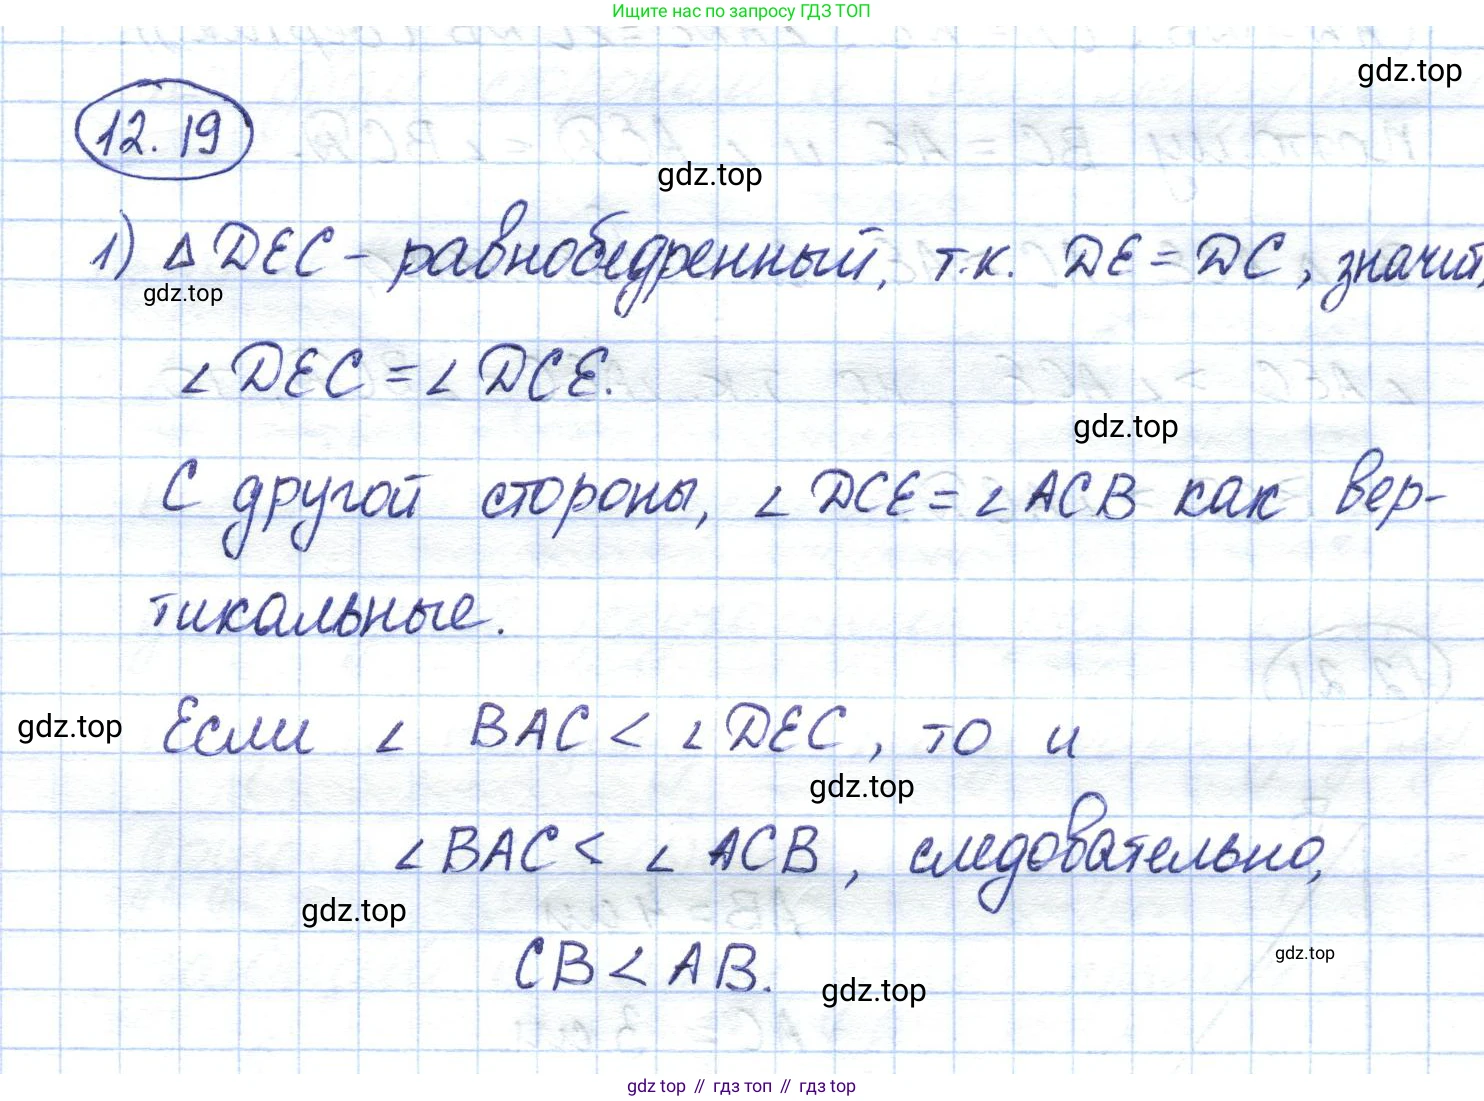 Ищите нас по запросу ГДЗ ТОП
gdz.top
12.19
gdz.top
1) Δ DEC - равнобедренный, т.к. DE = DC, значит,
gdz.top
∠ DEC = ∠ DCE.
gdz.top
С другой стороны, ∠ DCE = ∠ ACB как вер-
тикальные.
gdz.top
Если ∠ BAC < ∠ DEC, то и
gdz.top
∠ BAC < ∠ ACB, следовательно,
gdz.top
CB < AB.
gdz.top
gdz.top
gdz top // гдз топ // gdz top